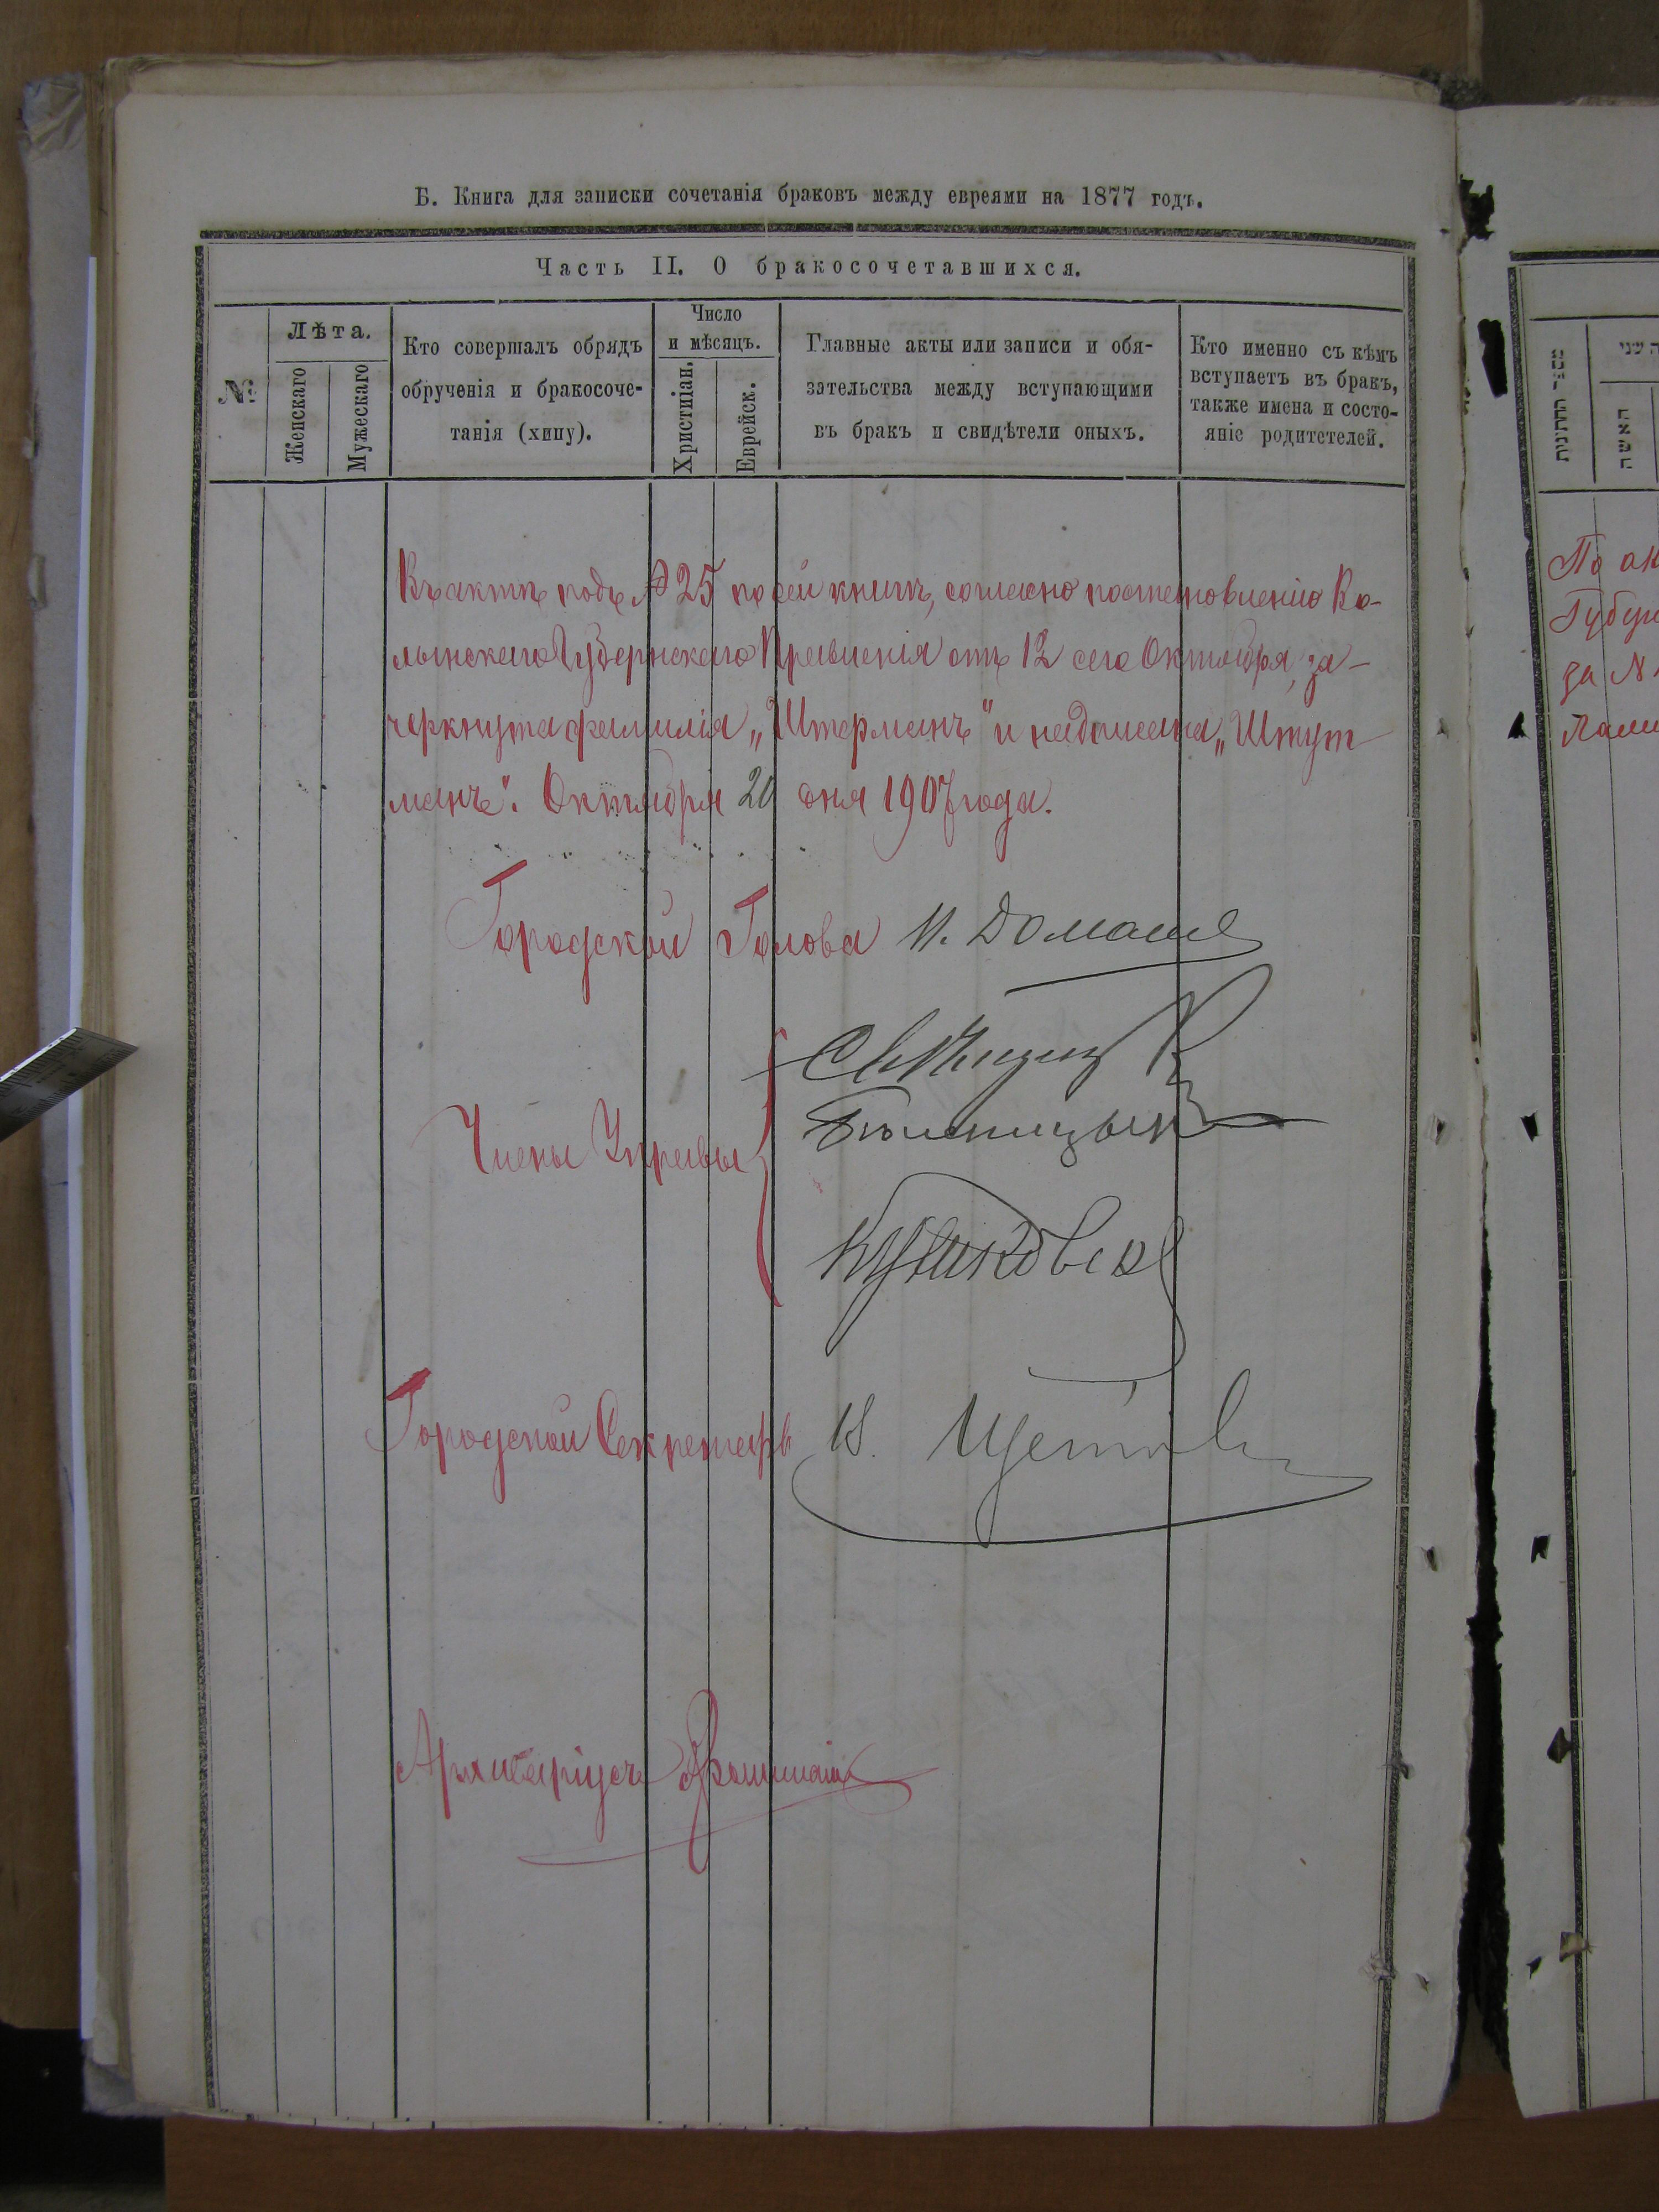 Б. Книга для записки сочетанія браковъ между евреями на 1877 годъ.
Часть II. О бракосочетавшихся.
№
Лѣта.
Женскаго
Мужескаго
Кто совершалъ обрядъ
обрученія и бракосоче-
танія (хипу).
Число
и мѣсяцъ.
Христіан.
Еврейск.
Главные акты или записи и обя-
зательства между вступающими
въ бракъ и свидѣтели оныхъ.
Кто именно съ кѣмъ
вступаетъ въ бракъ,
также имена и состо-
яніе родитетелей.
Въ актѣ подъ № 25 по сей книгѣ, согласно постановленію Во-
лынскаго Губернскаго Правленія отъ 12 сего Октября, за-
черкнута фамилія „Штерманъ" и надписана „Штут-
манъ". Октября 20 дня 1907 года.
Городской Голова
Члены Управы
Городской Секретарь
Архиваріусъ
האשה
По ак
Губерн
за №